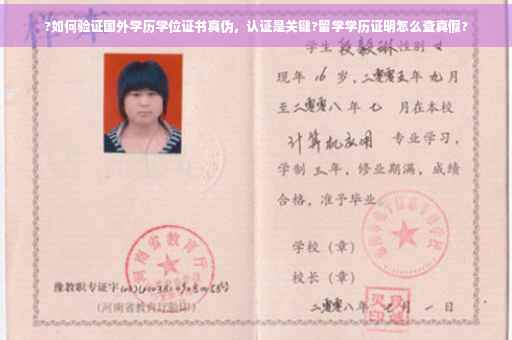 ?如何验证国外学历学位证书真伪，认证是关键?留学学历证明怎么查真假?
样本
学生 段毅琳 性别 女
现年 16 岁，二零零五年 九月
至二零零八 年 七 月在本校
计算机应用 专业学习，
学制 三 年，修业期满，成绩
合格，准予毕业
学校（章）
校长（章）
二零零八年 七 月 一 日
河南省教育厅
豫教职专证字
(河南省教育厅验印)